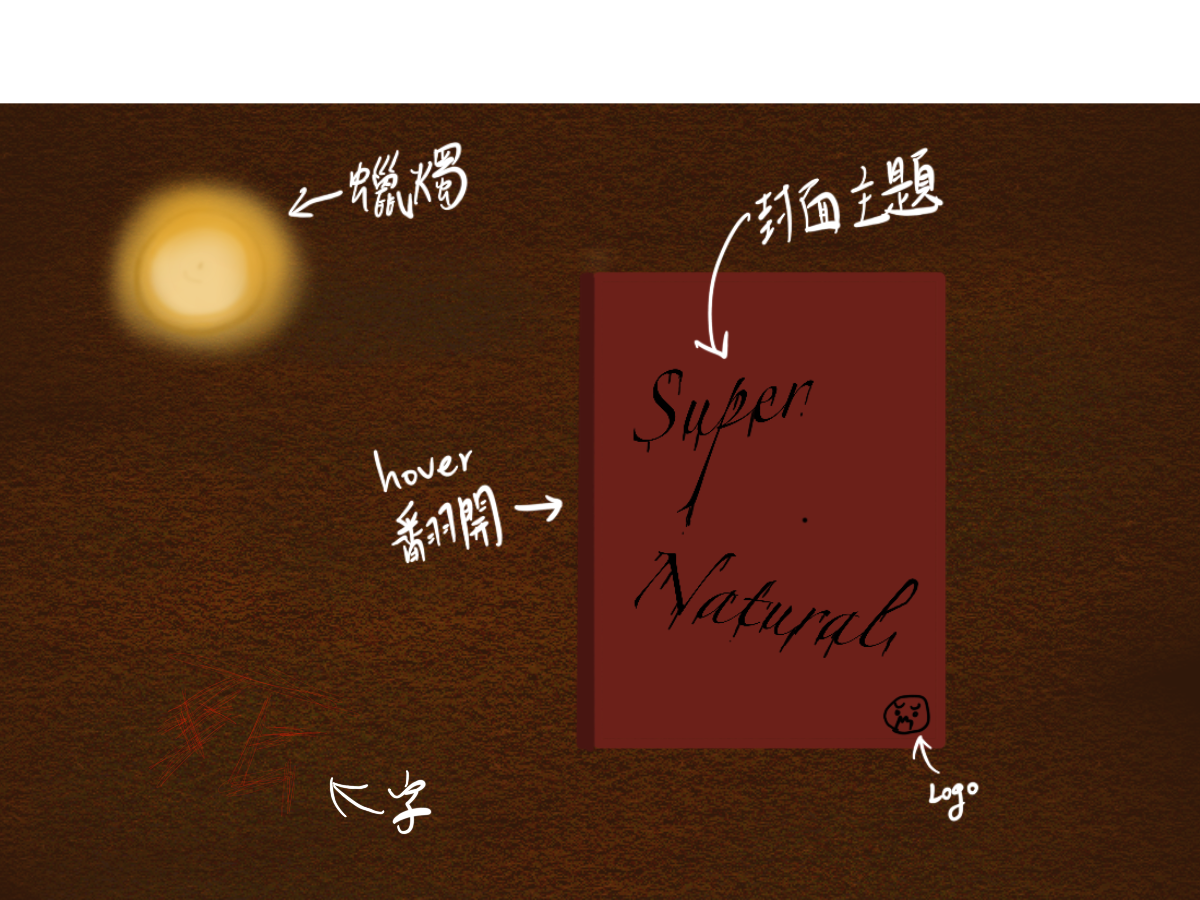 蠟燭
封面主題
Super
Natural
hover
翻開
字
Logo